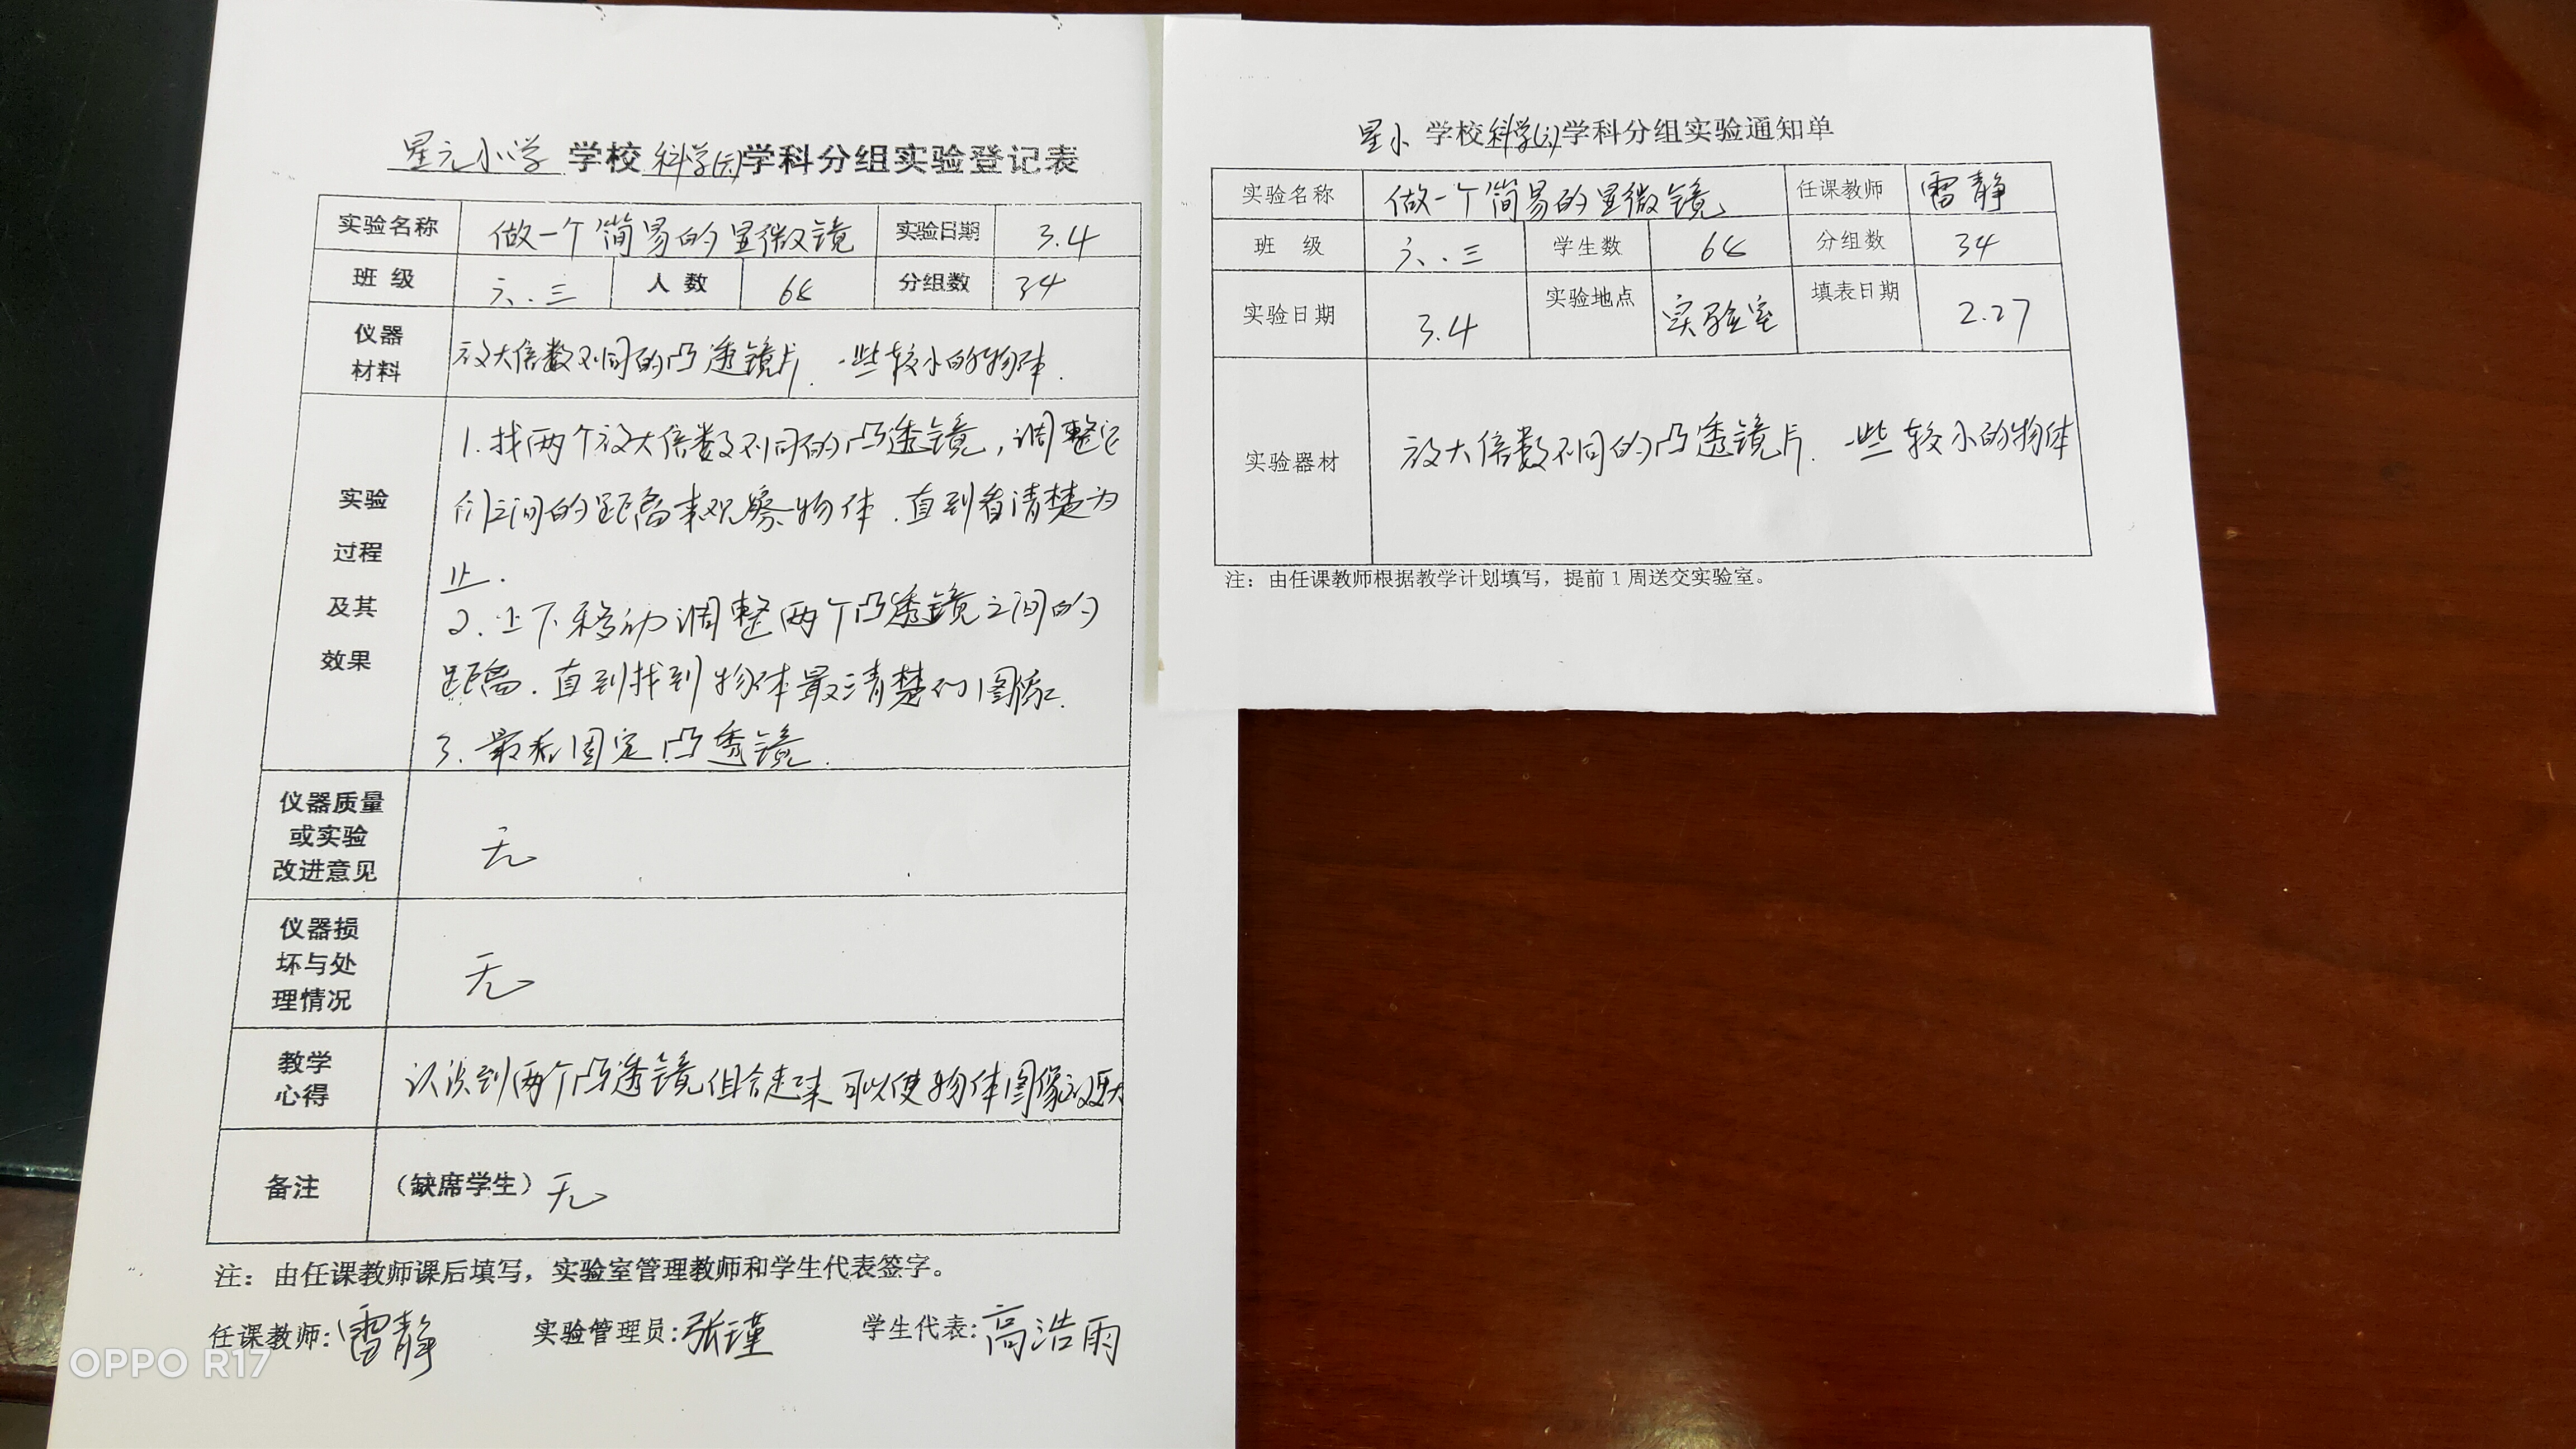 星元小学 学校 科学(六) 学科分组实验登记表
实验名称 做一个简易的显微镜 实验日期 3.4
班 级 六.三 人 数 68 分组数 34
仪器
材料
放大倍数不同的凸透镜片、一些较小的物体.
实验
过程
及其
效果
1.找两个放大倍数不同的凸透镜,调整它
们之间的距离来观察物体.直到看清楚为
止.
2.上下移动调整两个凸透镜之间的
距离.直到找到物体最清楚的图像.
3.最后固定凸透镜.
仪器质量
或实验
改进意见
无
仪器损
坏与处
理情况
无
教学
心得
认识到两个凸透镜组合起来可以使物体图像放更大
备注 (缺席学生) 无
注: 由任课教师课后填写, 实验室管理教师和学生代表签字。
任课教师: 雷静 实验管理员: 张瑾 学生代表: 高浩雨
OPPO R17
星小 学校 科学(六) 学科分组实验通知单
实验名称 做一个简易的显微镜 任课教师 雷静
班 级 六.三 学生数 68 分组数 34
实验日期 3.4 实验地点 实验室 填表日期 2.27
实验器材 放大倍数不同的凸透镜片、一些较小的物体
注: 由任课教师根据教学计划填写, 提前1周送交实验室。